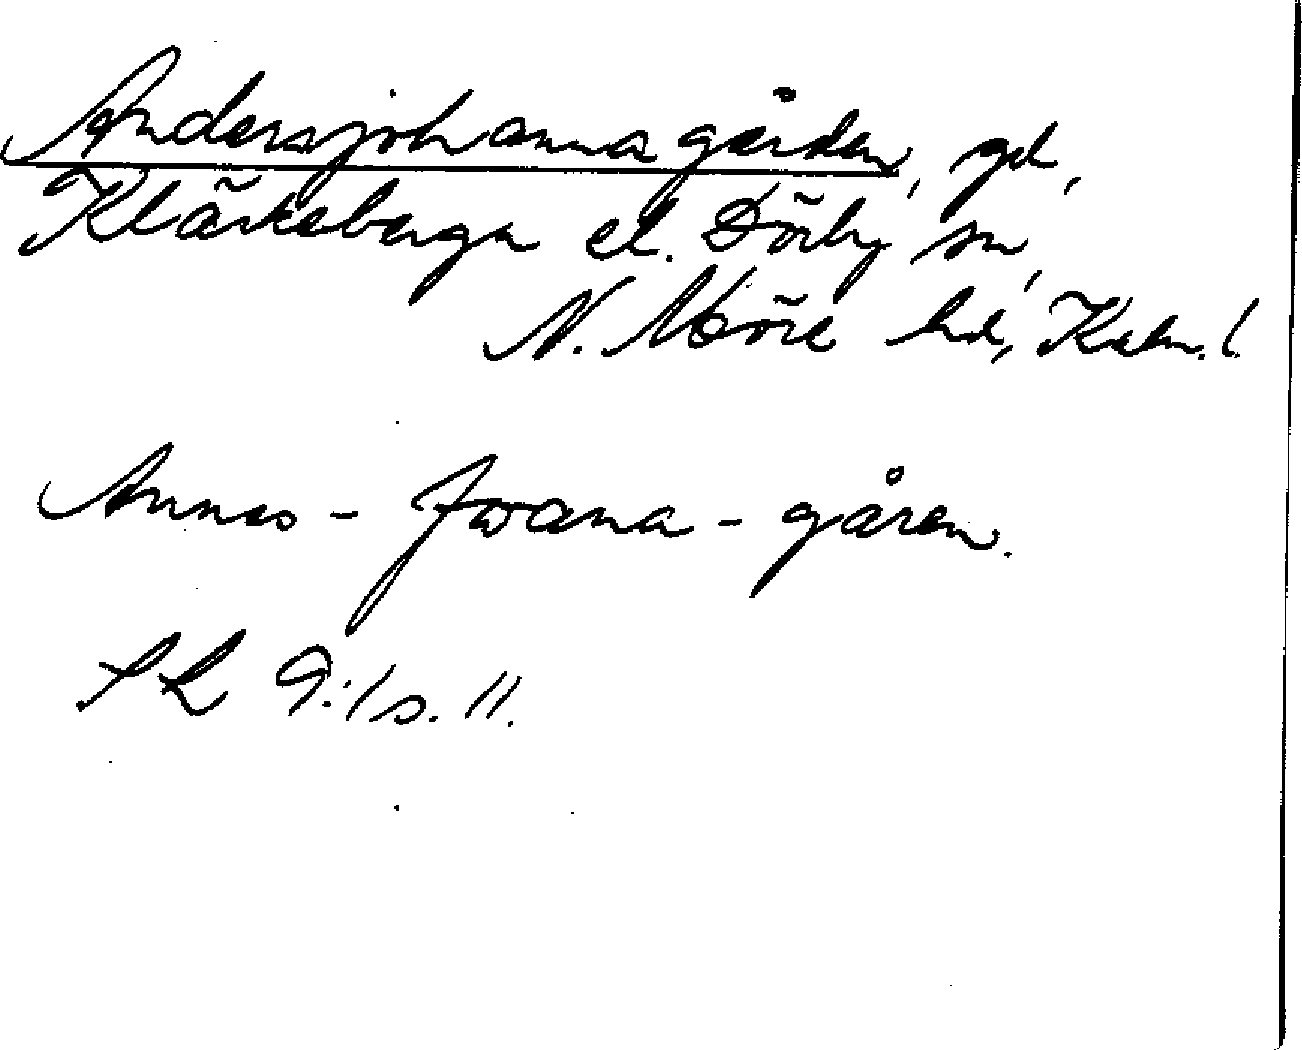 Andersjohannagården, gd,
Kläckeberga el. Dörby sn,
N. Möre hd, Kalm. l.
Annes - Jwana - gåren.
SL 9:1 s. 11.